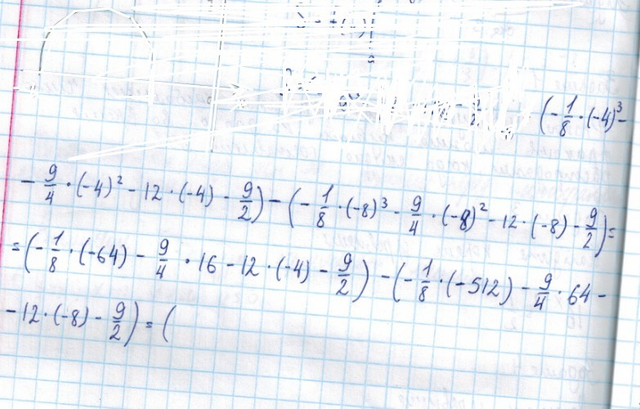 (-1/8·(-4)³-
-9/4·(-4)²-12·(-4)-9/2)-(-1/8·(-8)³-9/4·(-8)²-12·(-8)-9/2)=
=(-1/8·(-64)-9/4·16-12·(-4)-9/2)-(-1/8·(-512)-9/4·64-
-12·(-8)-9/2)=(